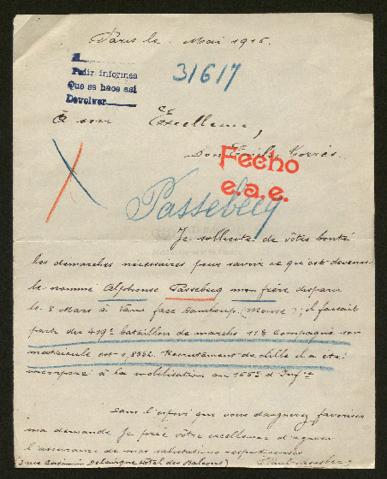 Paris le Mai 1916.
Pedir informes
Que se hace así
Devolver
31617
à son Excellence,
Don
Fecho
e.a.e.
Passebecq
Je sollicite de vôtre bonté
les démarches nécessaires pour savoir ce qu'est devenu
le nommé Alphonse Passebecq mon frère disparu
le 8 Mars à (Meuse); il faisait
partie du 419e bataillon de marche 118 Compagnie son
matricule est 8952. Recrutement de Lille il a été
incorporé à la mobilisation au 165e d'Infie
Dans l'espoir que vous daignerez favoriser
ma demande Je prie vôtre excellence d'agréer
l'assurance de mes salutations respectueuses
Casimir Delavigne Hôtel des Balcons)